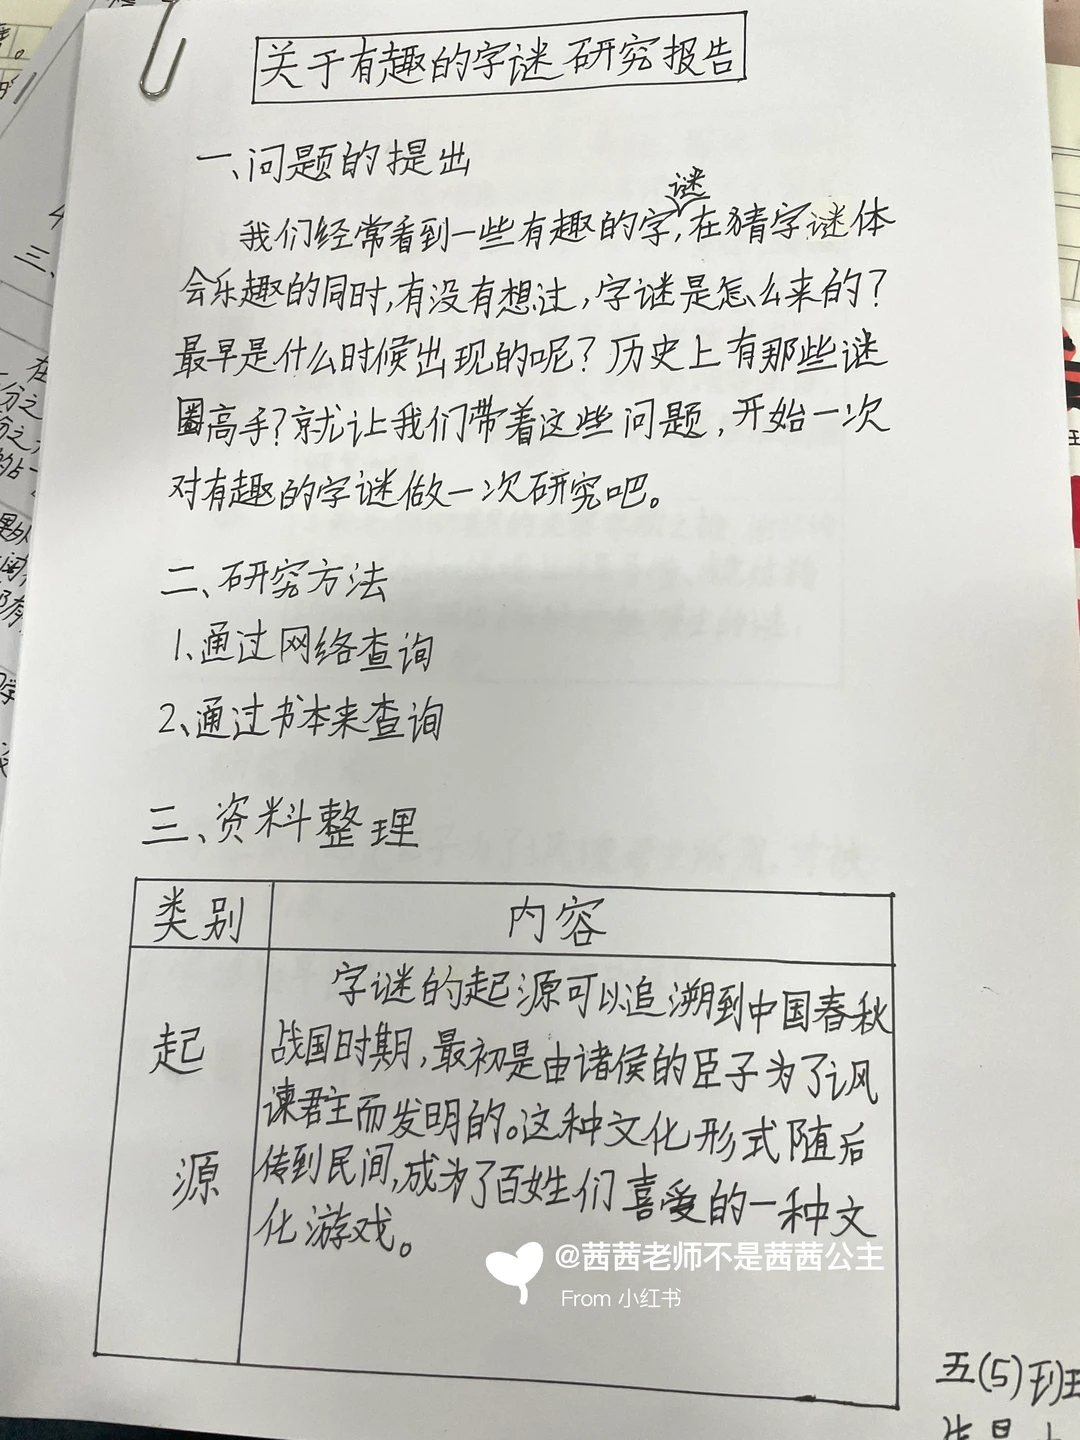 关于有趣的字谜研究报告
一、问题的提出
我们经常看到一些有趣的字谜,在猜字谜体
会乐趣的同时,有没有想过,字谜是怎么来的?
最早是什么时候出现的呢?历史上有那些谜
圈高手?就让我们带着这些问题,开始一次
对有趣的字谜做一次研究吧。
二、研究方法
1、通过网络查询
2、通过书本来查询
三、资料整理
类别
内容
起源
字谜的起源可以追溯到中国春秋
战国时期,最初是由诸侯的臣子为了讽
谏君主而发明的。这种文化形式随后
传到民间,成为了百姓们喜爱的一种文
化游戏。
@茜茜老师不是茜茜公主
From 小红书
五(5)班